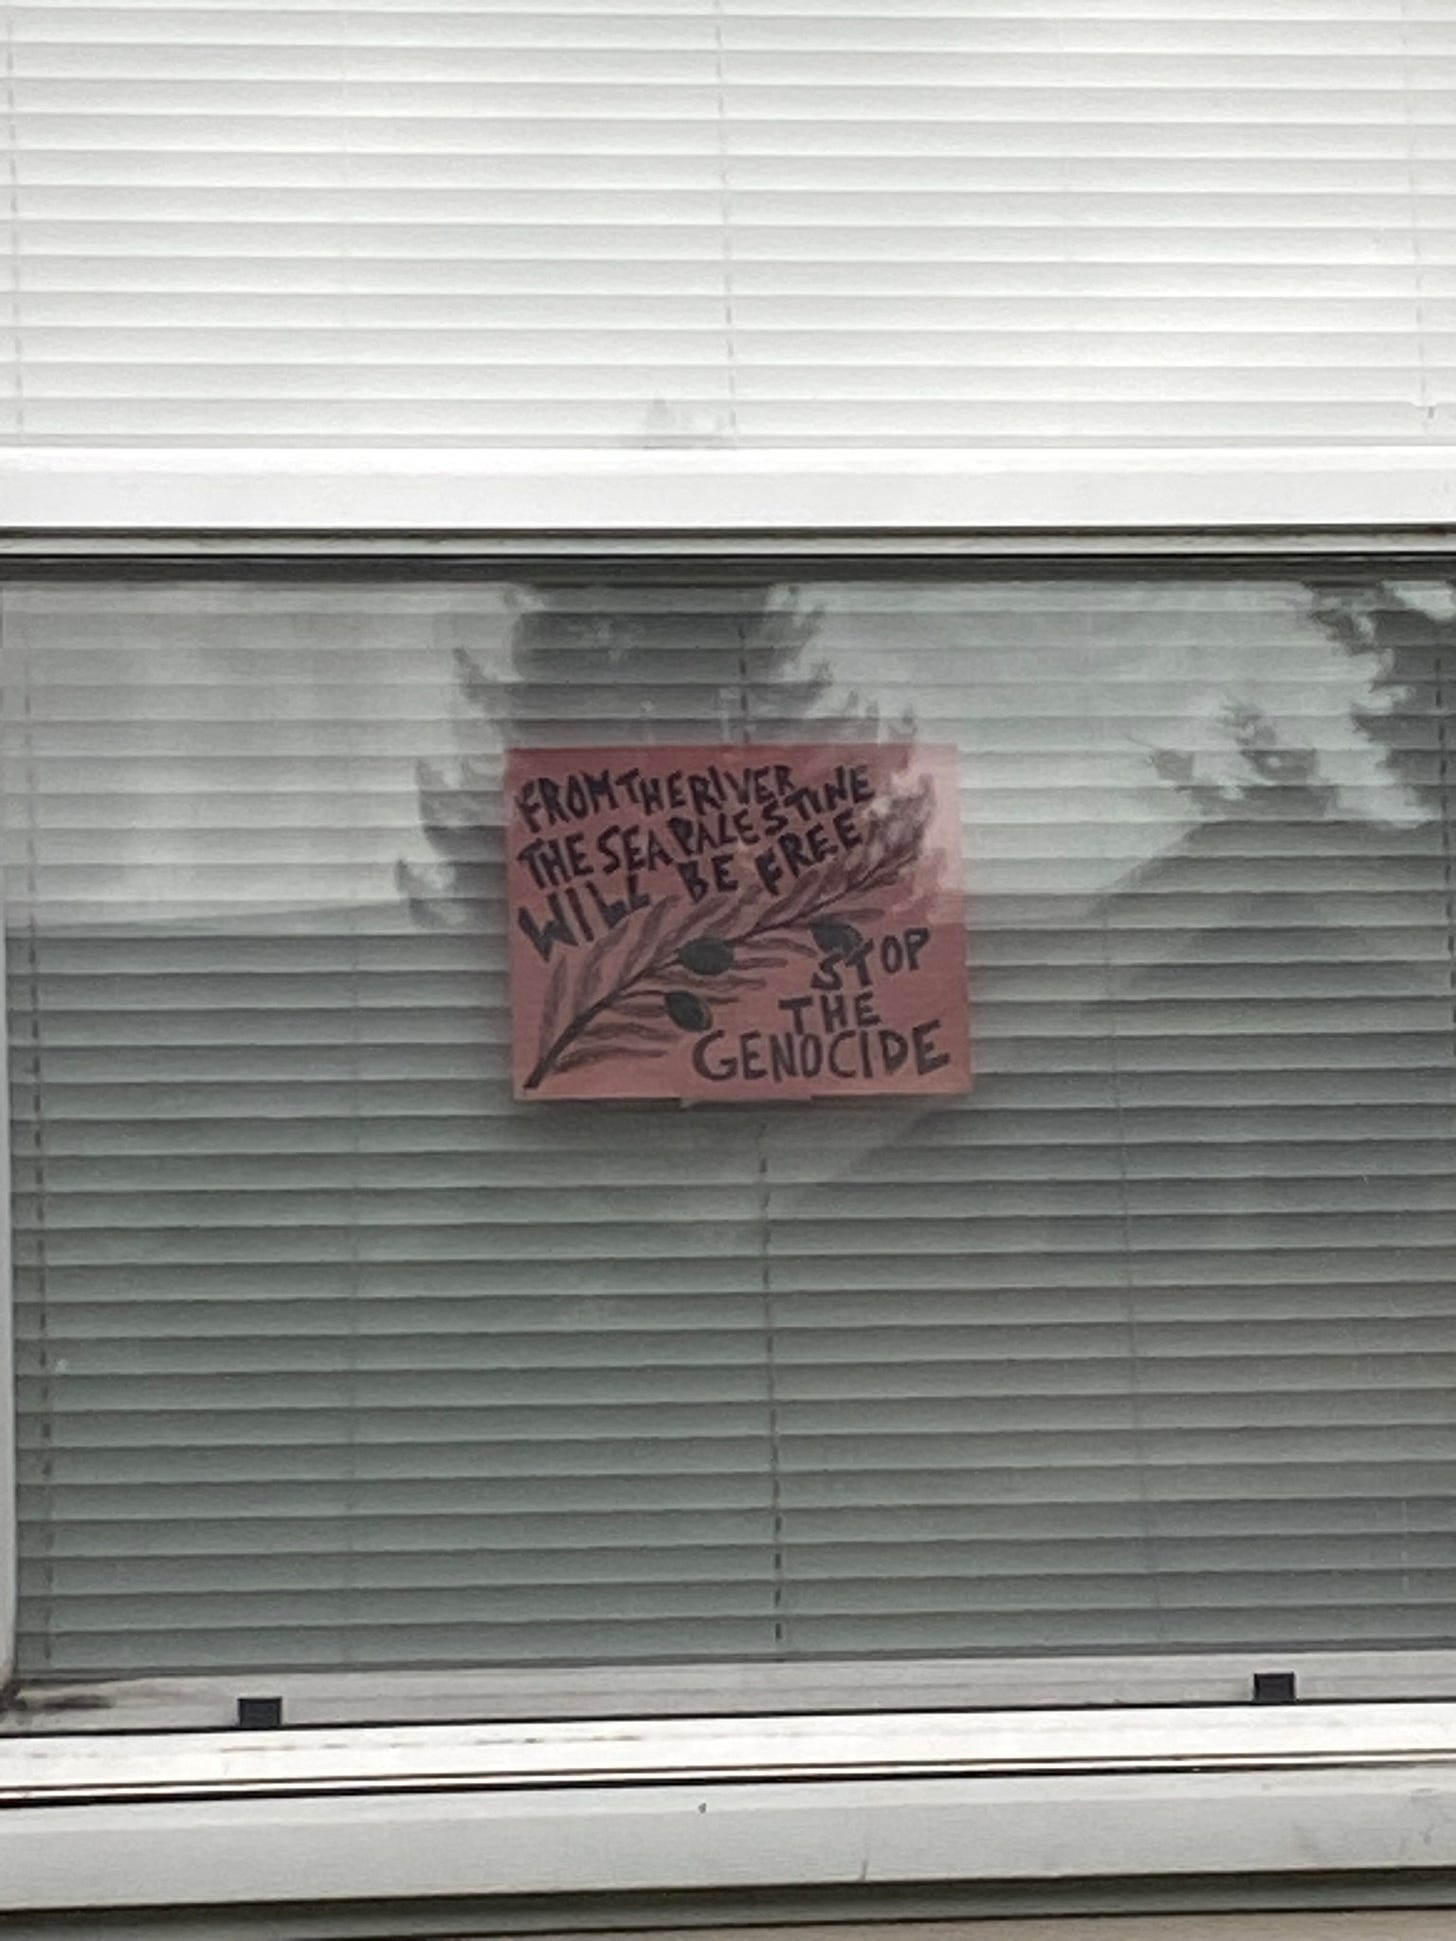 FROM THE RIVER
THE SEA PALESTINE
WILL BE FREE
STOP
THE
GENOCIDE